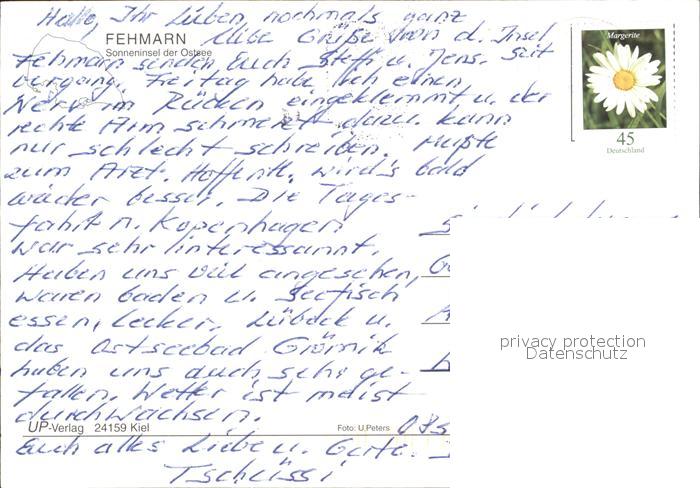 Hallo, Ihr Lieben, nochmals ganz
liebe Grüße von d. Insel
FEHMARN
Sonneninsel der Ostsee
Fehmarn senden Euch Steffi u. Jens. Seit
vergang. Freitag habe ich einen
Nerv im Rücken eingeklemmt u. der
rechte Arm schmerzt dazu. kann
nur schlecht schreiben. Mußte
zum Arzt. Hoffentl. wird's bald
wieder besser. Die Tages-
fahrt n. Kopenhagen
war sehr interessannt.
Haben uns viel angesehen,
waren baden u. Seefisch
essen, lecker. Lübeck u.
das Ostseebad Grömitz
haben uns auch sehr ge-
fallen. Wetter ist meist
durchwachsen.
UP-Verlag 24159 Kiel
Foto: U.Peters
Euch alles Liebe u. Gute.
Tschüssi
Margerite
45
Deutschland
privacy protection
Datenschutz